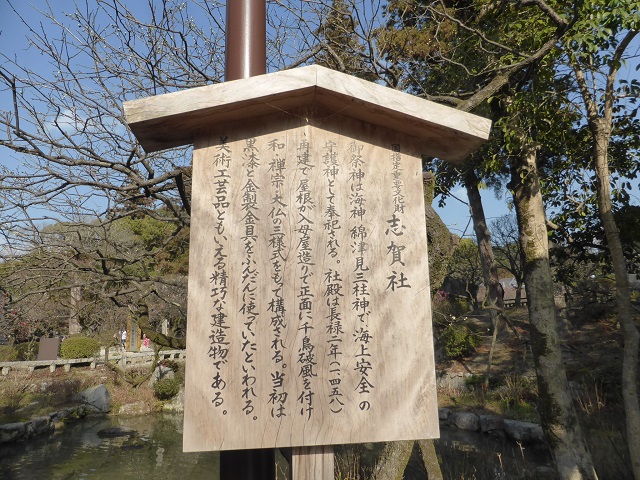 国指定重要文化財
志賀社
御祭神は海神 綿津見三柱神で海上安全の
守護神として奉祀される。社殿は長禄二年(一四五八)
再建で屋根が入母屋造りで正面に千鳥破風を付け
和 禅宗 大仏三様式をもて構成される。当初は
黒漆と金製金具をふんだんに使ていたといわれる。
美術工芸品ともいえる精巧な建造物である。